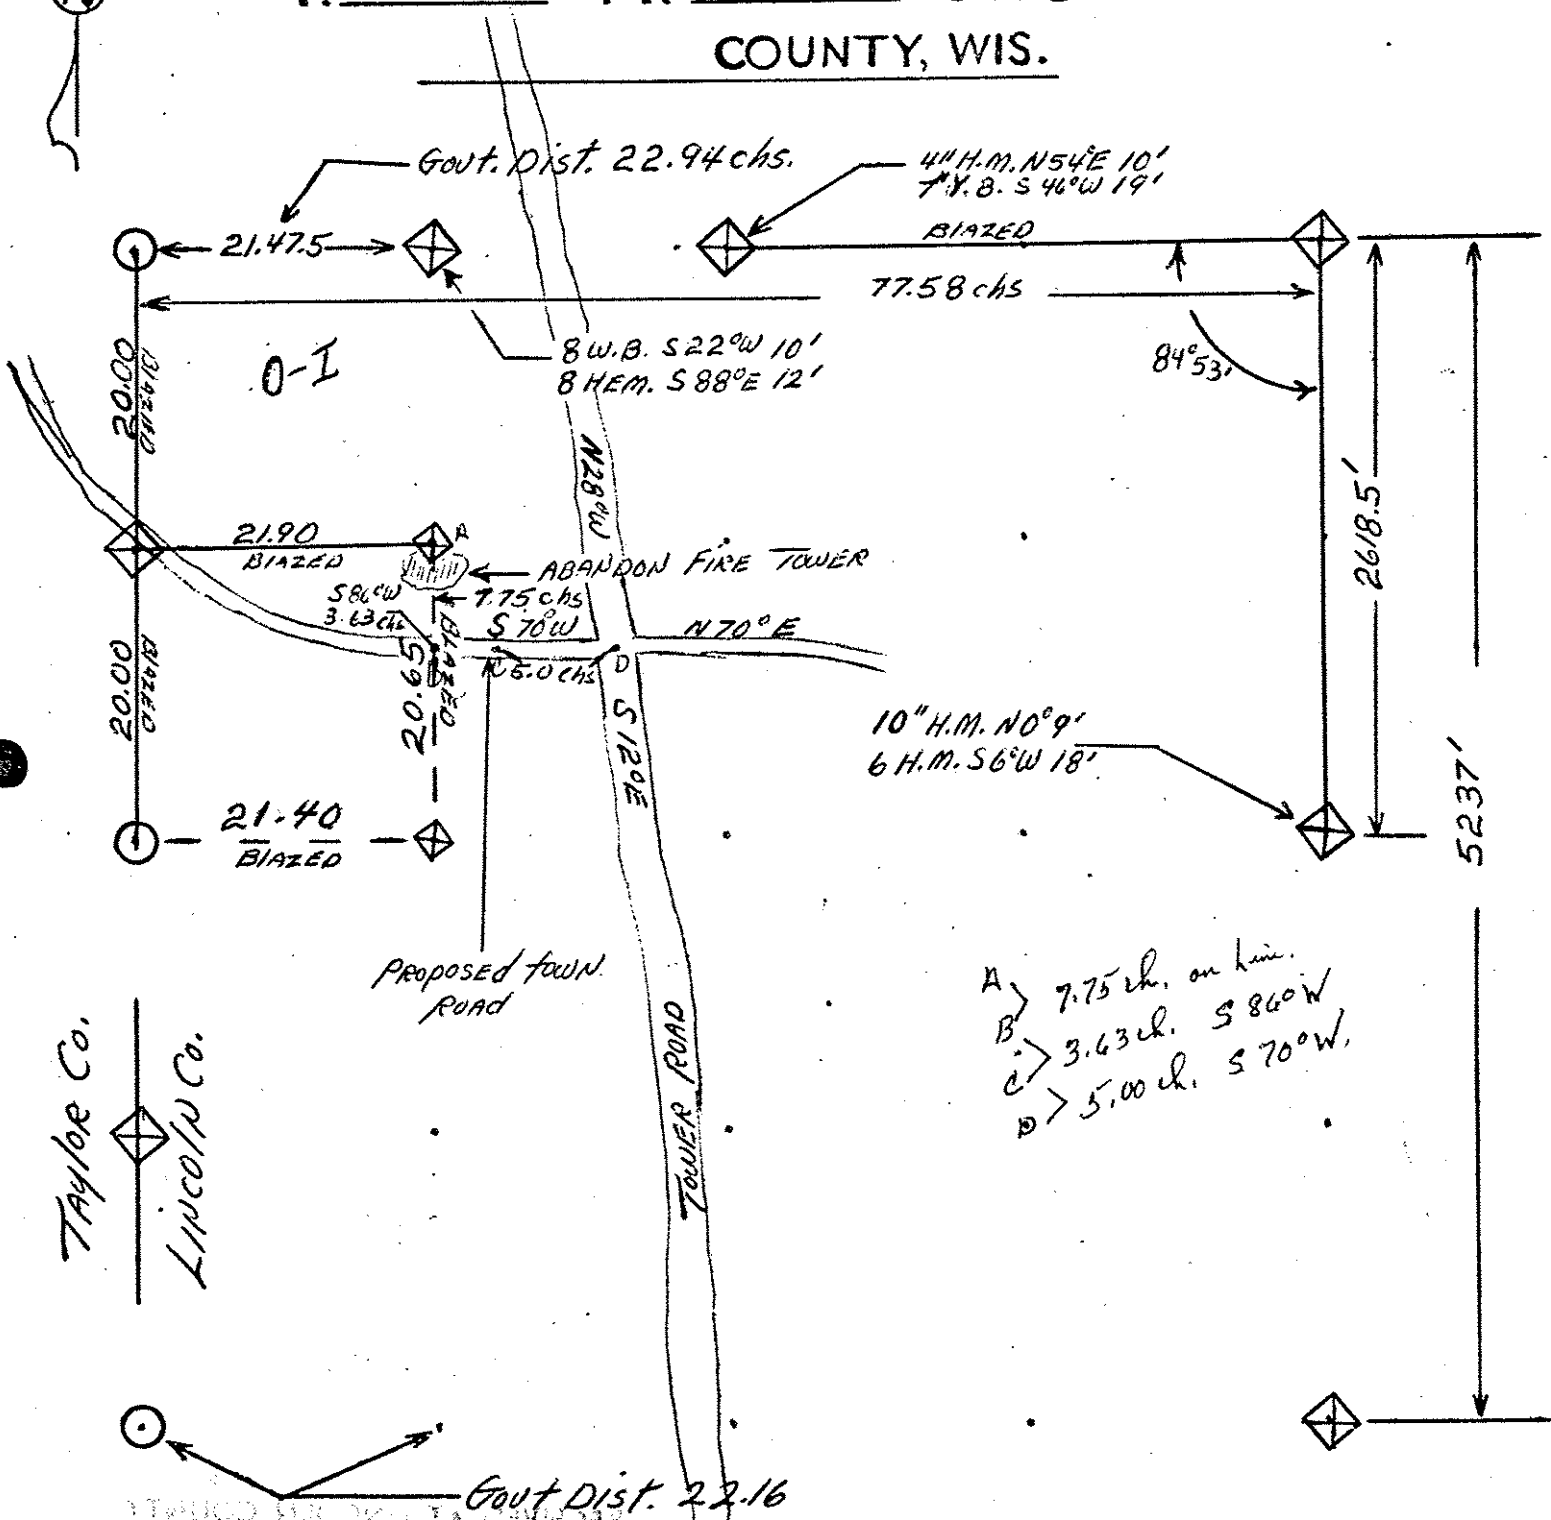 COUNTY, WIS.
Govt. Dist. 22.94 chs.
4" H.M. N54°E 10'
7" Y.B. S 46°W 19'
21.47.5
BLAZED
77.58 chs
8 W.B. S22°W 10'
8 HEM. S 88°E 12'
84°53'
O-I
20.00
BLAZED
N28°W
2618.5'
21.90
BLAZED
A
ABANDON FIRE TOWER
S86°W
3.63 chs
7.75 chs
S 70°W
N 70° E
C
5.0 chs
D
20.00
BLAZED
20.65
BLAZED
S 12°E
10" H.M. N0° 9'
6 H.M. S6°W 18'
5237'
21.40
BLAZED
PROPOSED TOWN
ROAD
A
7.75 ch. on line.
B
3.63 ch. S 86° W
C
5.00 ch. S 70° W.
D
TAYLOR Co.
LINCOLN Co.
TOWER ROAD
Govt Dist. 22.16